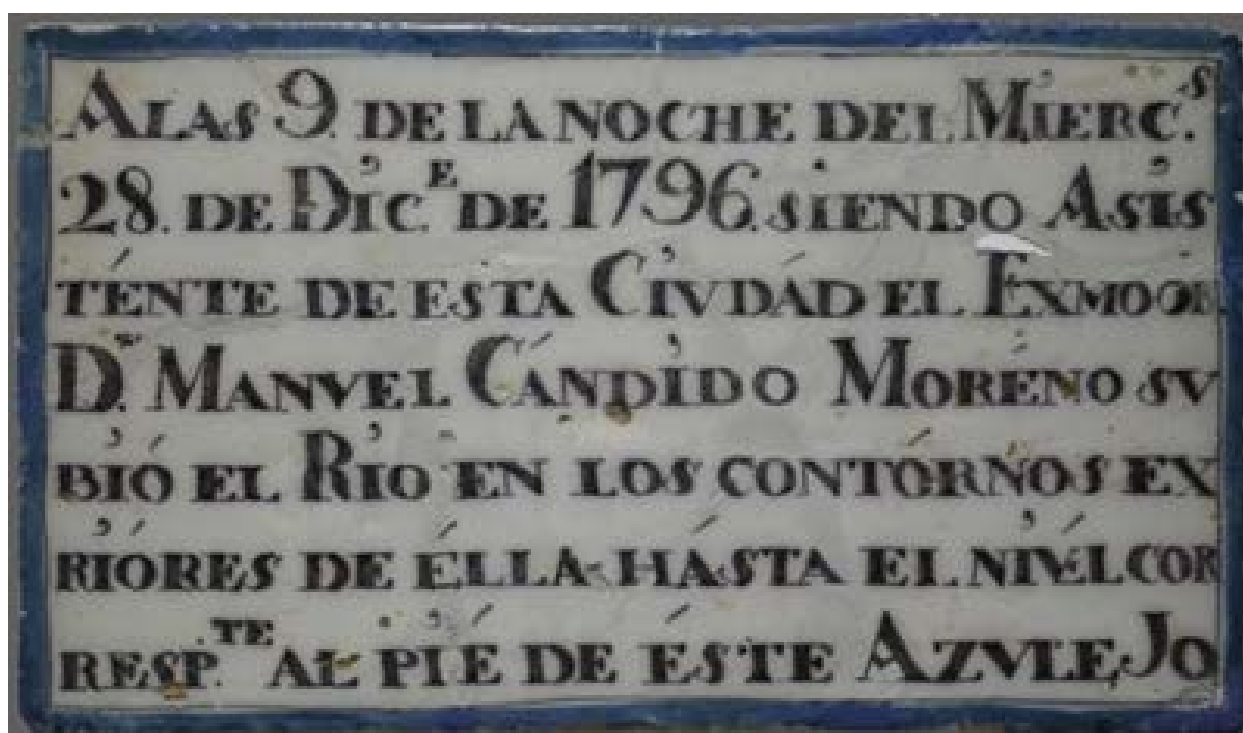 ALAS 9. DE LA NOCHE DEL MIERC.S
28. DE DIC.E DE 1796. SIENDO ASIS
TÉNTE DE ESTA CIVDÁD EL EXMO
D.N MANVEL CÁNDIDO MORÉNO SV
BIÓ EL RIO EN LOS CONTÓRNOS EX
RIÓRES DE ÉLLA HÁSTA EL NIVÉL COR
RESP.TE AL PIÉ DE ÉSTE AZVLEJO